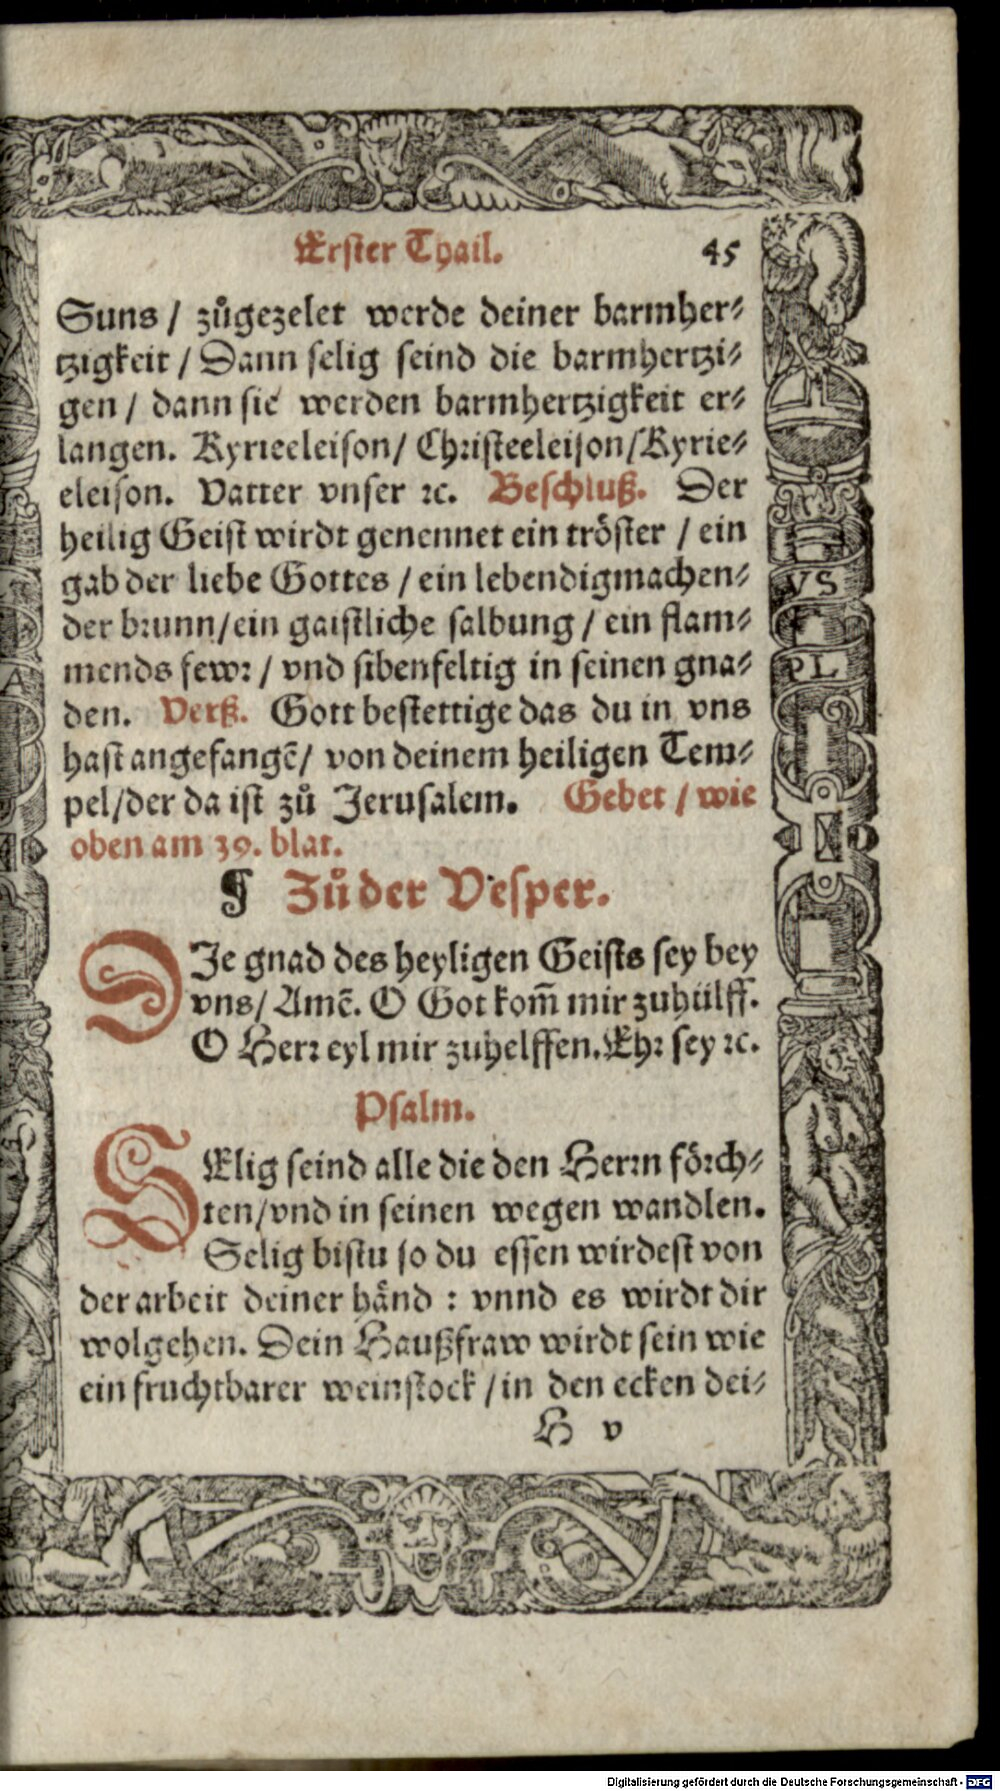 Erster Thail. 45
Suns / zůgezelet werde deiner barmher⸗
tzigkeit / Dann selig seind die barmhertzi⸗
gen / dann sie werden barmhertzigkeit er⸗
langen. Kyrieeleison / Christeeleison / Kyrie⸗
eleison. Vatter vnser ꝛc. Beschluß. Der
heilig Geist wirdt genennet ein tröster / ein
gab der liebe Gottes / ein lebendigmachen⸗
der brunn / ein gaistliche salbung / ein flam⸗
mends fewr / vnd sibenfeltig in seinen gna⸗
den. Verß. Gott bestettige das du in vns
hast angefangē / von deinem heiligen Tem⸗
pel / der da ist zů Jerusalem. Gebet / wie
oben am 39. blat.
¶ Zů der Vesper.
DJe gnad des heyligen Geists sey bey
vns / Amē. O Got kom̄ mir zuhülff.
O Herr eyl mir zuhelffen. Ehr sey ꝛc.
Psalm.
SElig seind alle die den Herrn förch⸗
ten / vnd in seinen wegen wandlen.
Selig bistu so du essen wirdest von
der arbeit deiner händ : vnnd es wirdt dir
wolgehen. Dein Haußfraw wirdt sein wie
ein fruchtbarer weinstock / in den ecken dei⸗
H v
VS
PL
A
Digitalisierung gefördert durch die Deutsche Forschungsgemeinschaft - DFG